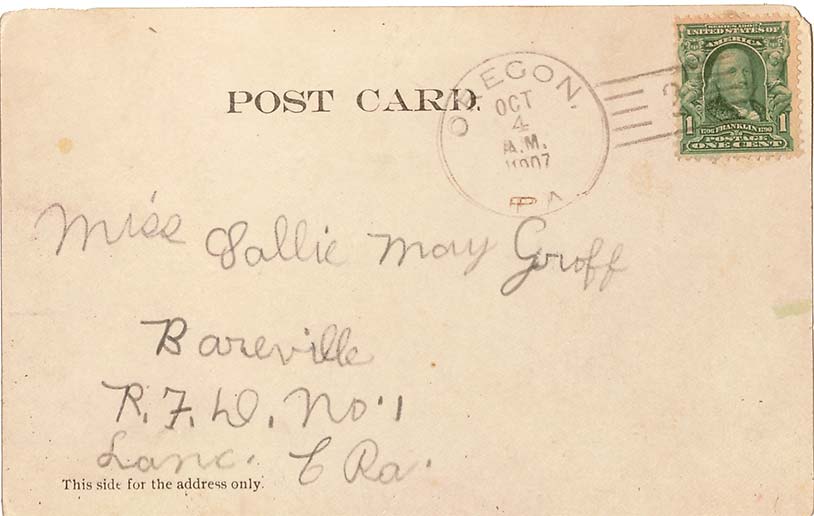 POST CARD.
OREGON,
OCT
4
A.M.
1907
PA
SERIES 1902
UNITED STATES OF
AMERICA
1 1706 FRANKLIN 1790 1
POSTAGE
ONE CENT
Miss Sallie May Groff
Bareville
R.F.D. No. 1
Lanc. C Pa.
This side for the address only.